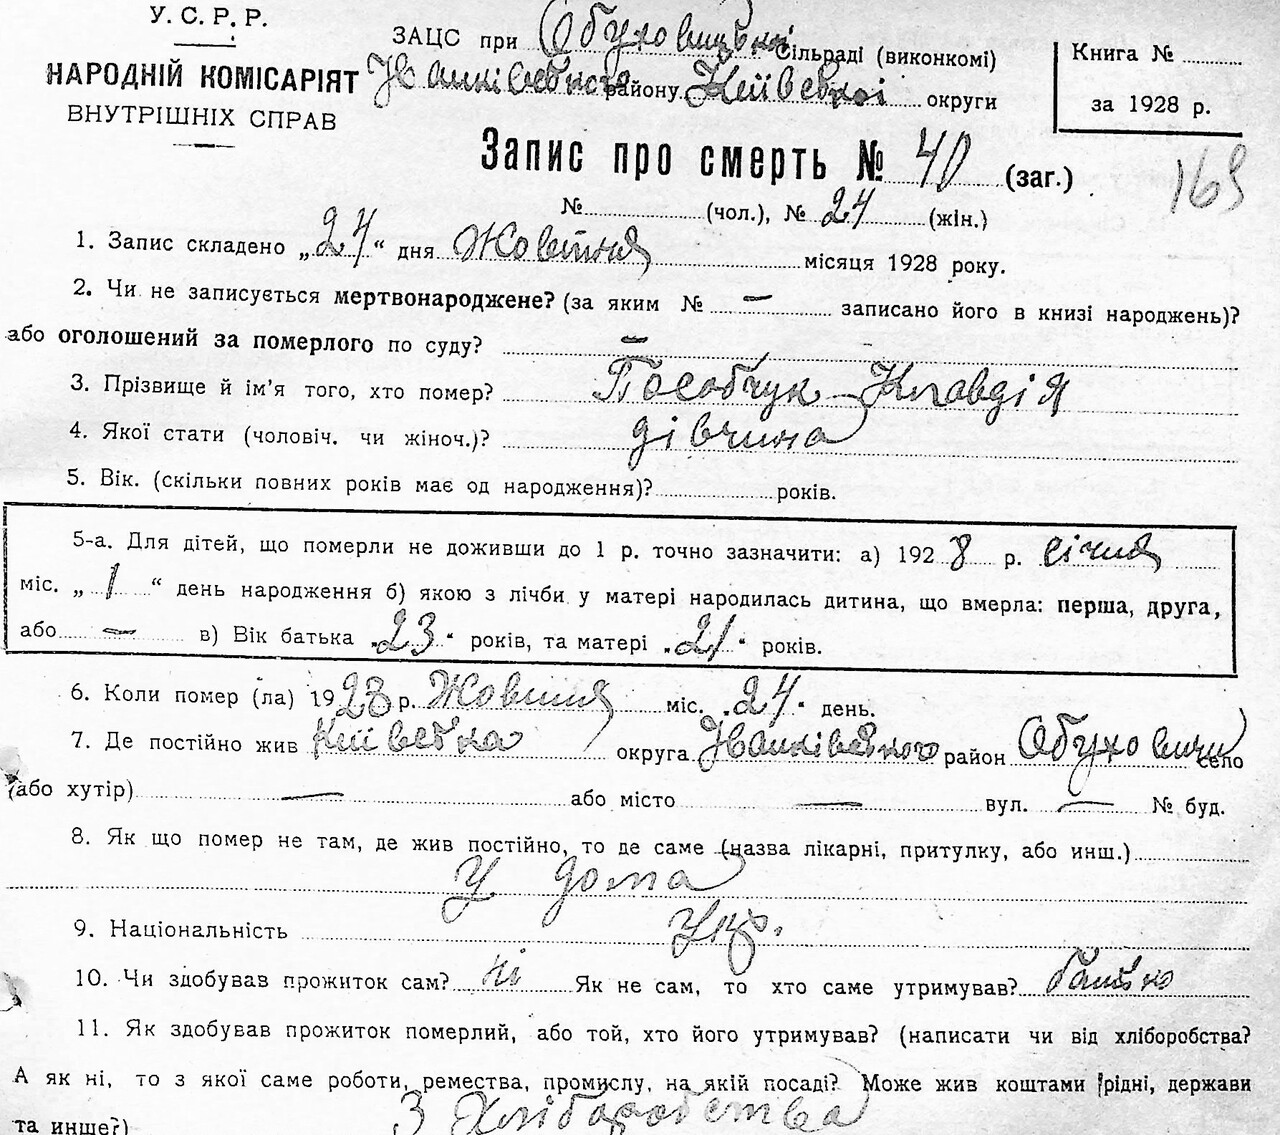 У. С. Р. Р.
НАРОДНІЙ КОМІСАРІЯТ
ВНУТРІШНІХ СПРАВ
ЗАЦС при Обуховицькій сільраді (виконкомі)
Іванківського району Київської округи
Книга №
за 1928 р.
169
Запис про смерть № 40 (заг.)
№ (чол.), № 24 (жін.)
1. Запис складено „24“ дня Жовтня місяця 1928 року.
2. Чи не записується мертвонароджене? (за яким № — записано його в книзі народжень)?
або оголошений за померлого по суду? —
3. Прізвище й ім’я того, хто помер? Пособчук Клавдія
4. Якої стати (чоловіч. чи жіноч.)? дівчина
5. Вік. (скільки повних років має од народження)? років.
5-а. Для дітей, що померли не доживши до 1 р. точно зазначити: а) 1928 р. січня
міс. „1“ день народження б) якою з лічби у матері народилась дитина, що вмерла: перша, друга,
або — в) Вік батька „23“ років, та матері „21“ років.
6. Коли помер (ла) 1928 р. Жовтня міс. „24“ день.
7. Де постійно жив Київська округа Іванківського район Обуховичи село
(або хутір) — або місто — вул. — № буд.
8. Як що помер не там, де жив постійно, то де саме (назва лікарні, притулку, або инш.)
У дома
9. Національність Укр.
10. Чи здобував прожиток сам? ні Як не сам, то хто саме утримував? батько
11. Як здобував прожиток померлий, або той, хто його утримував? (написати чи від хліборобства?
А як ні, то з якої саме роботи, ремества, промислу, на якій посаді? Може жив коштами рідні, держави
та инше?) З Хліборобства